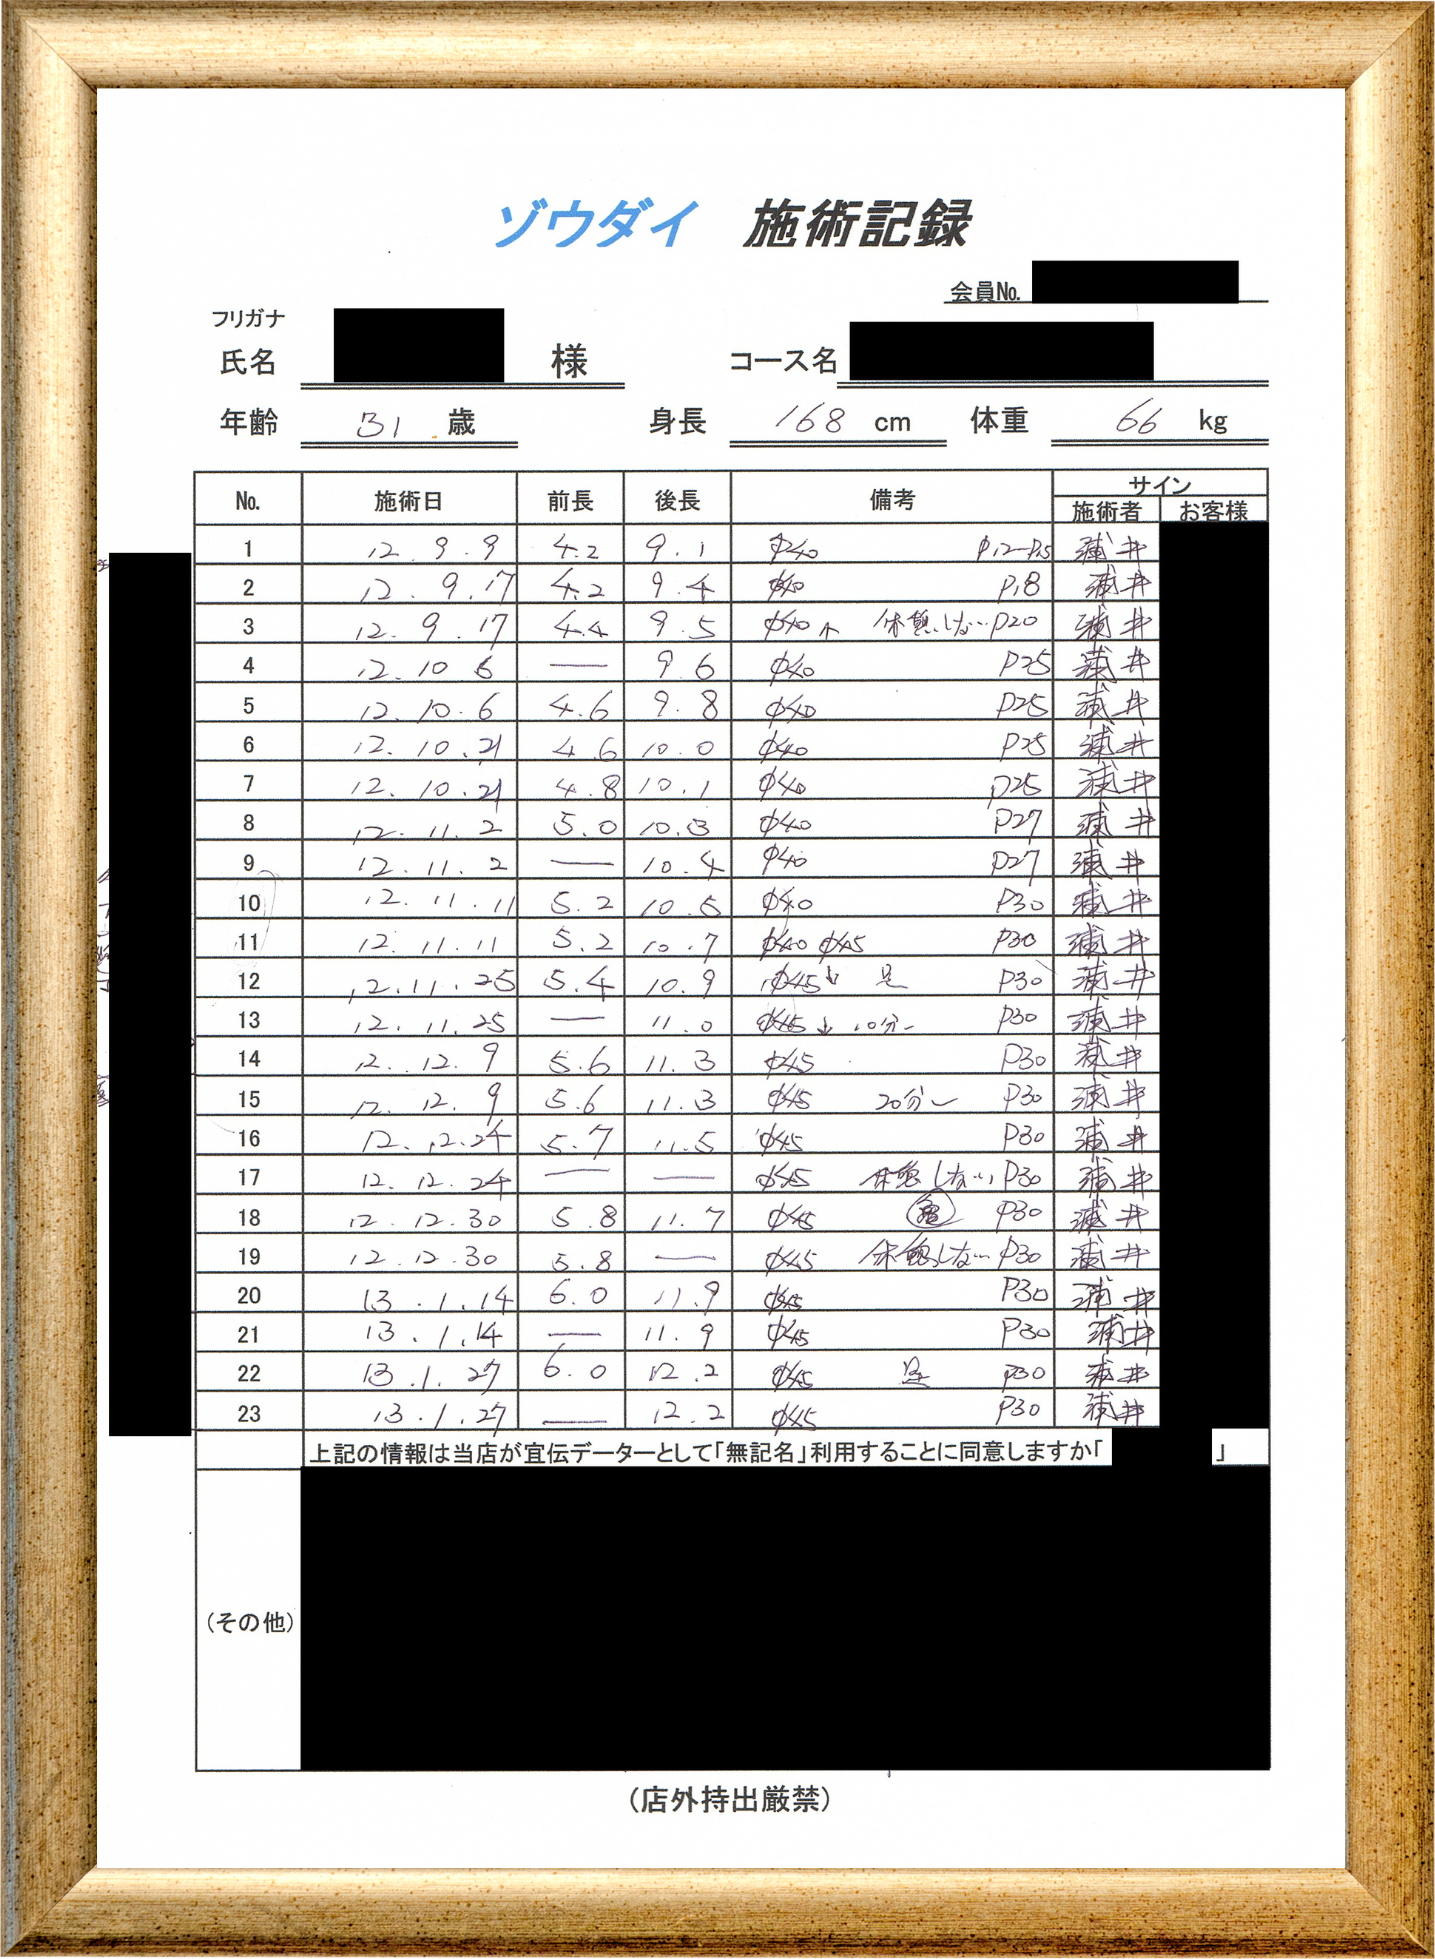 ゾウダイ 施術記録
会員No.
フリガナ
氏名 様 コース名
年齢 31 歳 身長 168 cm 体重 66 kg
No. 施術日 前長 後長 備考 サイン
施術者 お客様
1 12.9.9 4.2 9.1 φ40 P12-P15
2 12.9.17 4.2 9.4 φ40 P18
3 12.9.17 4.4 9.5 φ40 休憩しない P20
4 12.10.6 — 9.6 φ40 P25
5 12.10.6 4.6 9.8 φ40 P25
6 12.10.21 4.6 10.0 φ40 P25
7 12.10.21 4.8 10.1 φ40 P25
8 12.11.2 5.0 10.3 φ40 P27
9 12.11.2 — 10.4 φ40 P27
10 12.11.11 5.2 10.5 φ40 P30
11 12.11.11 5.2 10.7 φ40 φ45 P30
12 12.11.25 5.4 10.9 φ45↓ P30
13 12.11.25 — 11.0 φ45↓ 10分〜 P30
14 12.12.9 5.6 11.3 φ45 P30
15 12.12.9 5.6 11.3 φ45 20分〜 P30
16 12.12.24 5.7 11.5 φ45 P30
17 12.12.24 — — φ45 休憩しない P30
18 12.12.30 5.8 11.7 φ45 P30
19 12.12.30 5.8 — φ45 休憩しない P30
20 13.1.14 6.0 11.9 φ45 P30
21 13.1.14 — 11.9 φ45 P30
22 13.1.27 6.0 12.2 φ45 P30
23 13.1.27 — 12.2 φ45 P30
上記の情報は当店が宣伝データーとして「無記名」利用することに同意しますか「 」
(その他)
(店外持出厳禁)